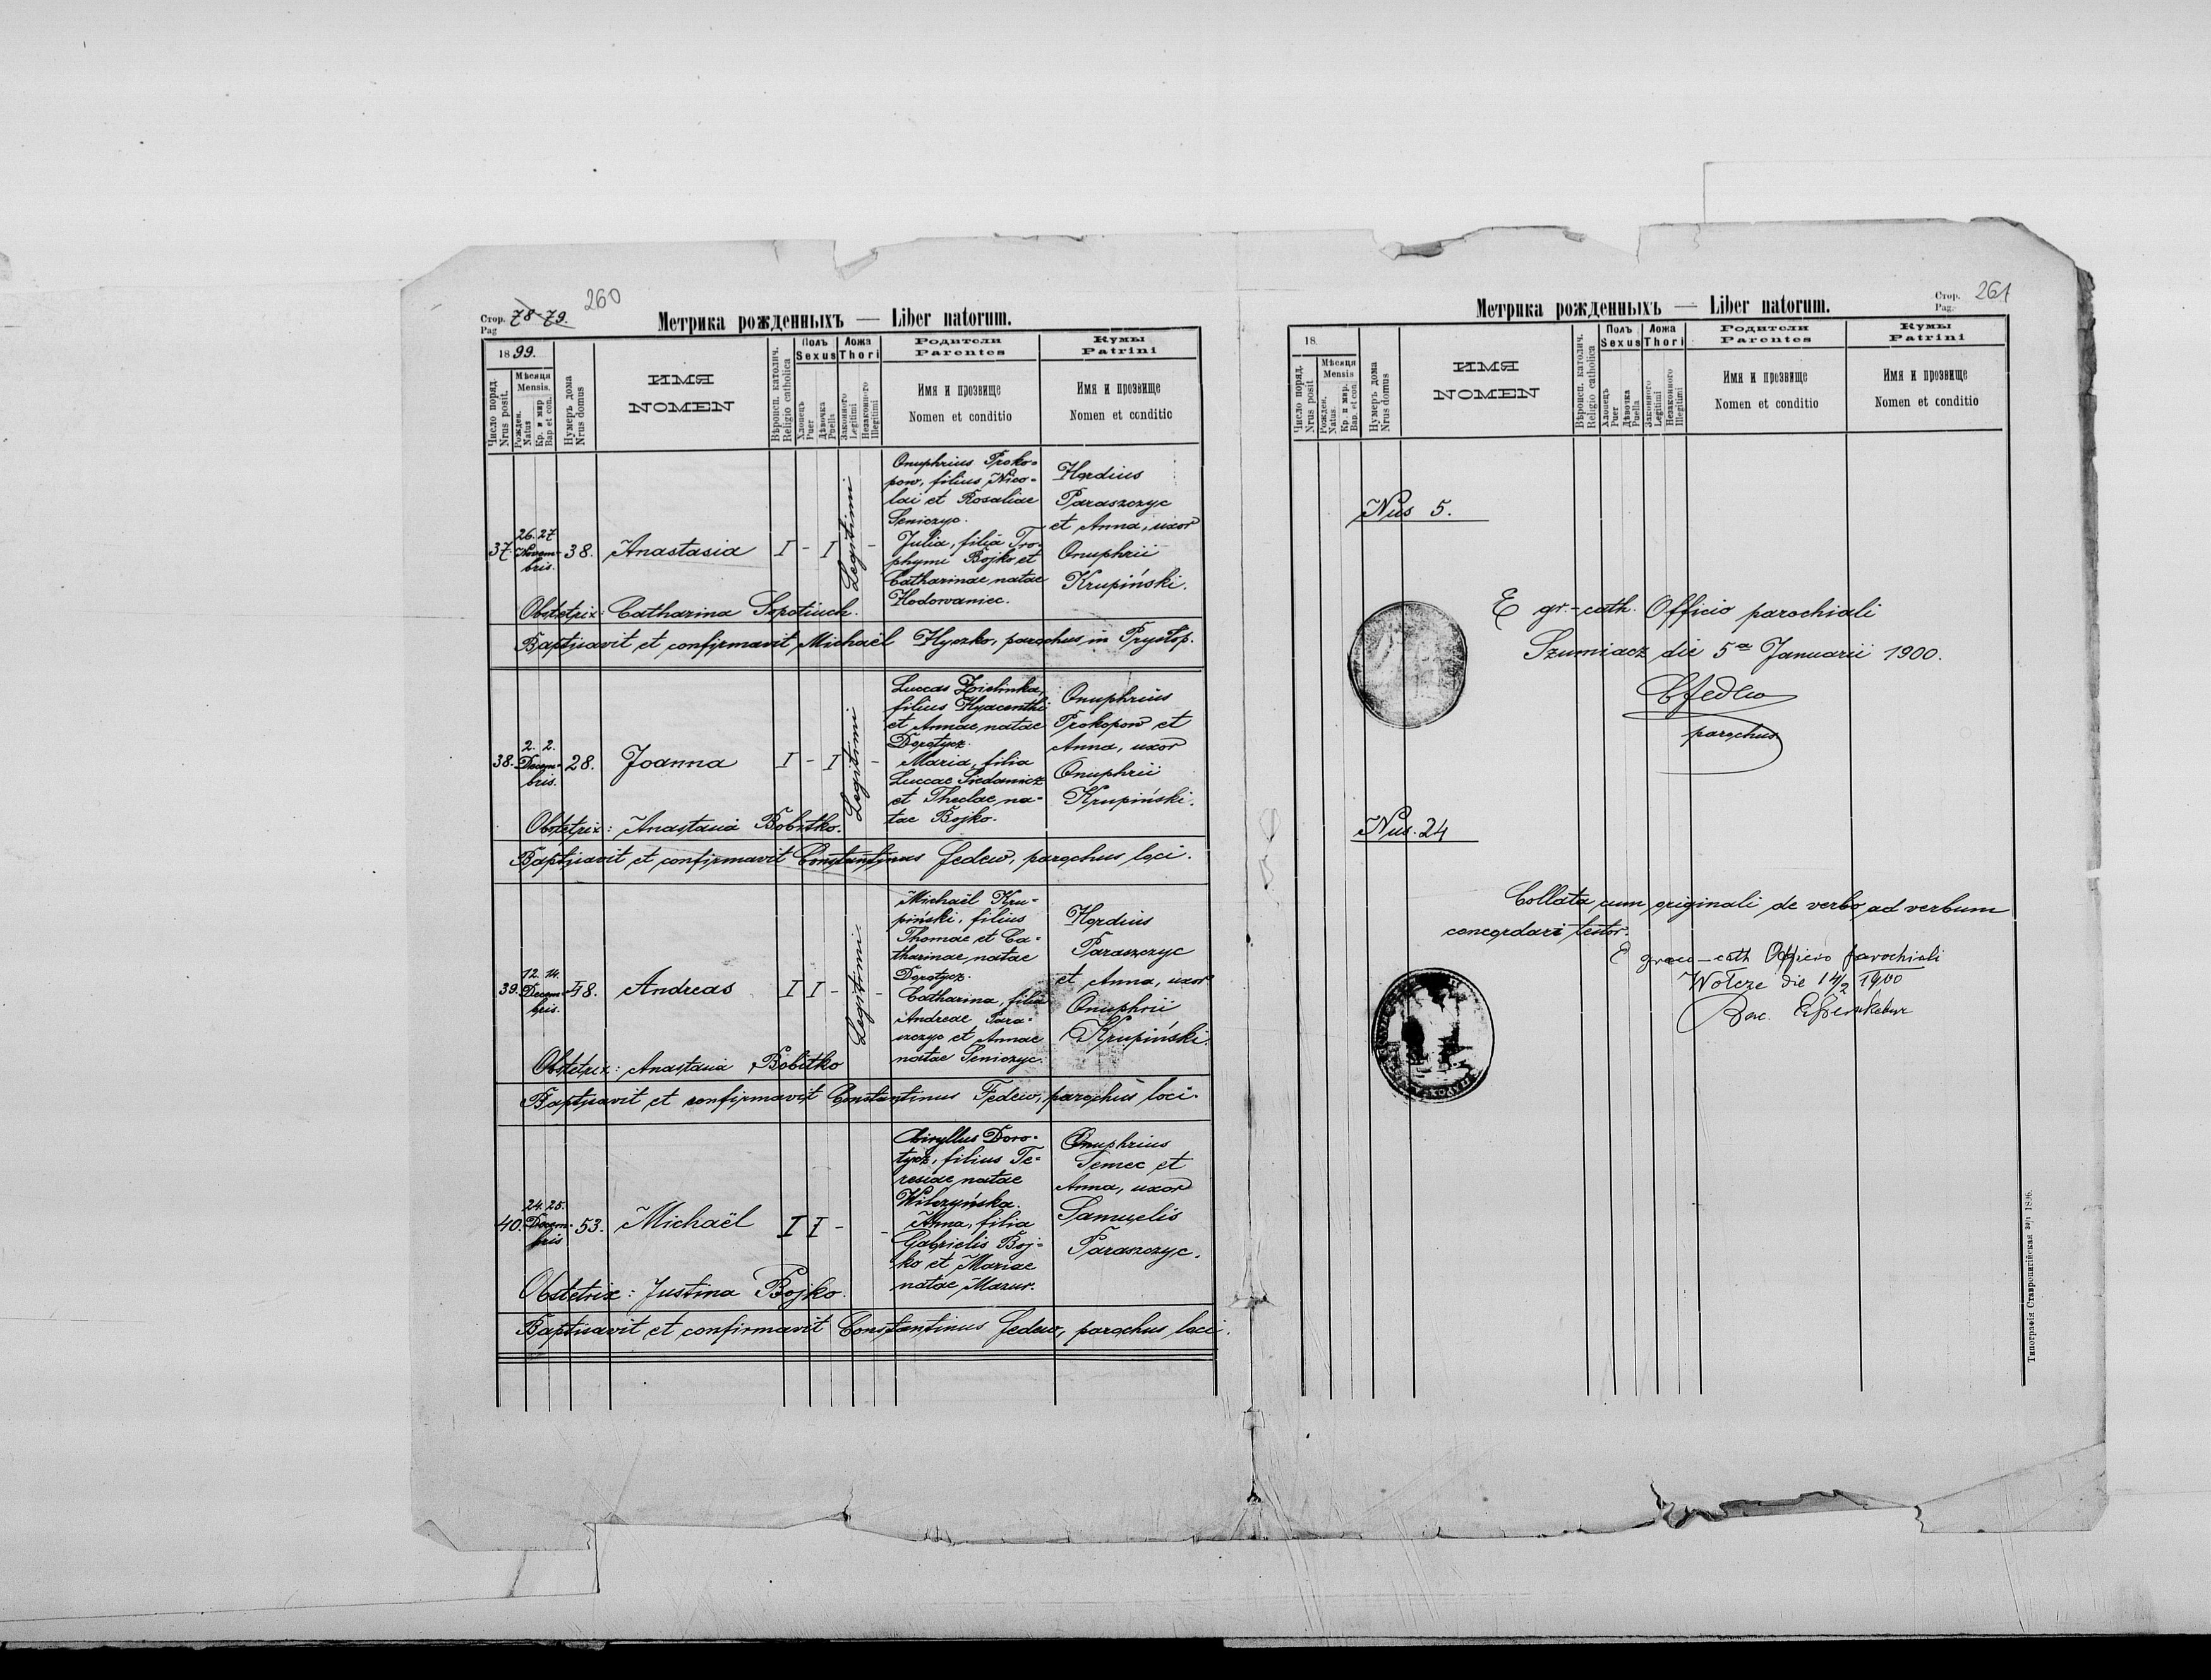 260
Стор. 78-79.
Pag
Метрика рожденныхъ — Liber natorum.
1899.
Число поряд.
Nrus posit.
Мѣсяця
Mensis.
Рожден.
Natus
Кр. и мир
Bap et con.
Нумеръ дома
Nrus domus
ИМЯ
NOMEN
Вѣроисп. католич.
Religio catholica
Полъ
Sexus
Хлопецъ
Puer
Дѣвочка
Puella
Ложа
Thori
Законного
Legitimi
Незаконного
Illegitimi
Родители
Parentes
Имя и прозвище
Nomen et conditio
Кумы
Patrini
Имя и прозвище
Nomen et conditio
37.
26. 27
Novem-
bris.
38.
Anastasia
I - I -
Legitimi
Onuphrius Proko-
pow, filius Nico-
lai et Rosaliae
Seniczyc.
Julia, filia Tro-
phymi Bojko et
Catharinae, natae
Hodowaniec.
Hordius
Paraszczyc
et Anna, uxor
Onuphrii
Krupiński.
Obstetrix: Catharina
Baptisavit et confirmavit Michaël Hyszko, parochus in Prystop.
38.
2. 2.
Decem-
bris.
28.
Joanna
I - I -
Legitimi
Luccas Zielinka,
filius Hyacenthi
et Annae, natae
Dorotycz.
Maria, filia
Luccae
et Theclae, na-
tae Bojko.
Onuphrius
Prokopow et
Anna, uxor
Onuphrii
Krupiński.
Obstetrix: Anastasia Bobitko.
Baptisavit et confirmavit Constantinus Fedew, parochus loci.
39.
12. 14.
Decem-
bris.
48.
Andreas
I I - -
Legitimi.
Michaël Kru-
piński, filius
Thomae et Ca-
tharinae, natae
Dorotycz.
Catharina, filia
Andreae Para-
szczyc et Annae
natae Seniczyc.
Hordius
Paraszczyc
et Anna, uxor
Onuphrii
Krupiński.
Obstetrix: Anastasia Bobitko
Baptisavit et confirmavit Constantinus Fedew, parochus loci.
40.
24. 25.
Decem-
bris
53.
Michaël
I I - -
Ciryllus Doro-
tycz, filius Te-
resiae natae
Wilczyńska.
Anna, filia
Gabrielis Boj-
ko et Mariae
natae Mazur.
Onuphrius
Temec et
Anna, uxor
Samuelis
Paraszczyc.
Obstetrix: Justina Bojko.
Baptisavit et confirmavit Constantinus Fedew, parochus loci.
261
Стор.
Pag.
Метрика рожденныхъ — Liber natorum.
18
Число поряд.
Nrus posit
Мѣсяця
Mensis
Рожден.
Natus.
Кр. и мир.
Bap. et con.
Нумеръ дома
Nrus domus
ИМЯ
NOMEN
Вѣроисп. католич.
Religio catholica
Полъ
Sexus
Хлопецъ
Puer
Дѣвочка
Puella
Ложа
Thori
Законного
Legitimi
Незаконного
Illegitimi
Родители
Parentes
Имя и прозвище
Nomen et conditio
Кумы
Patrini
Имя и прозвище
Nomen et conditio
Nus 5.
E gr.-cath. Officio parochiali
Szumiacz die 5a Januarii 1900.
CFedew
parochus
Nus. 24
Collata cum originali de verbo ad verbum
concordari testor.
E graeco-cath Officio parochiali
Wołcze die 14/2 1900
Типографія Ставропигійская